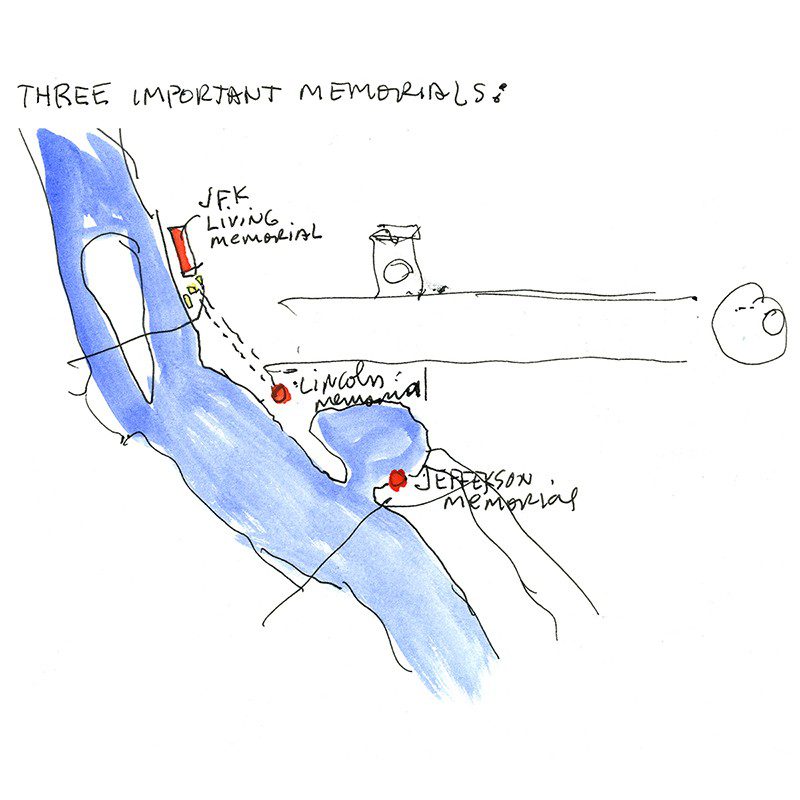 THREE IMPORTANT MEMORIALS:
JFK
LIVING
MEMORIAL
LINCOLN
MEMORIAL
JEFFERSON
MEMORIAL